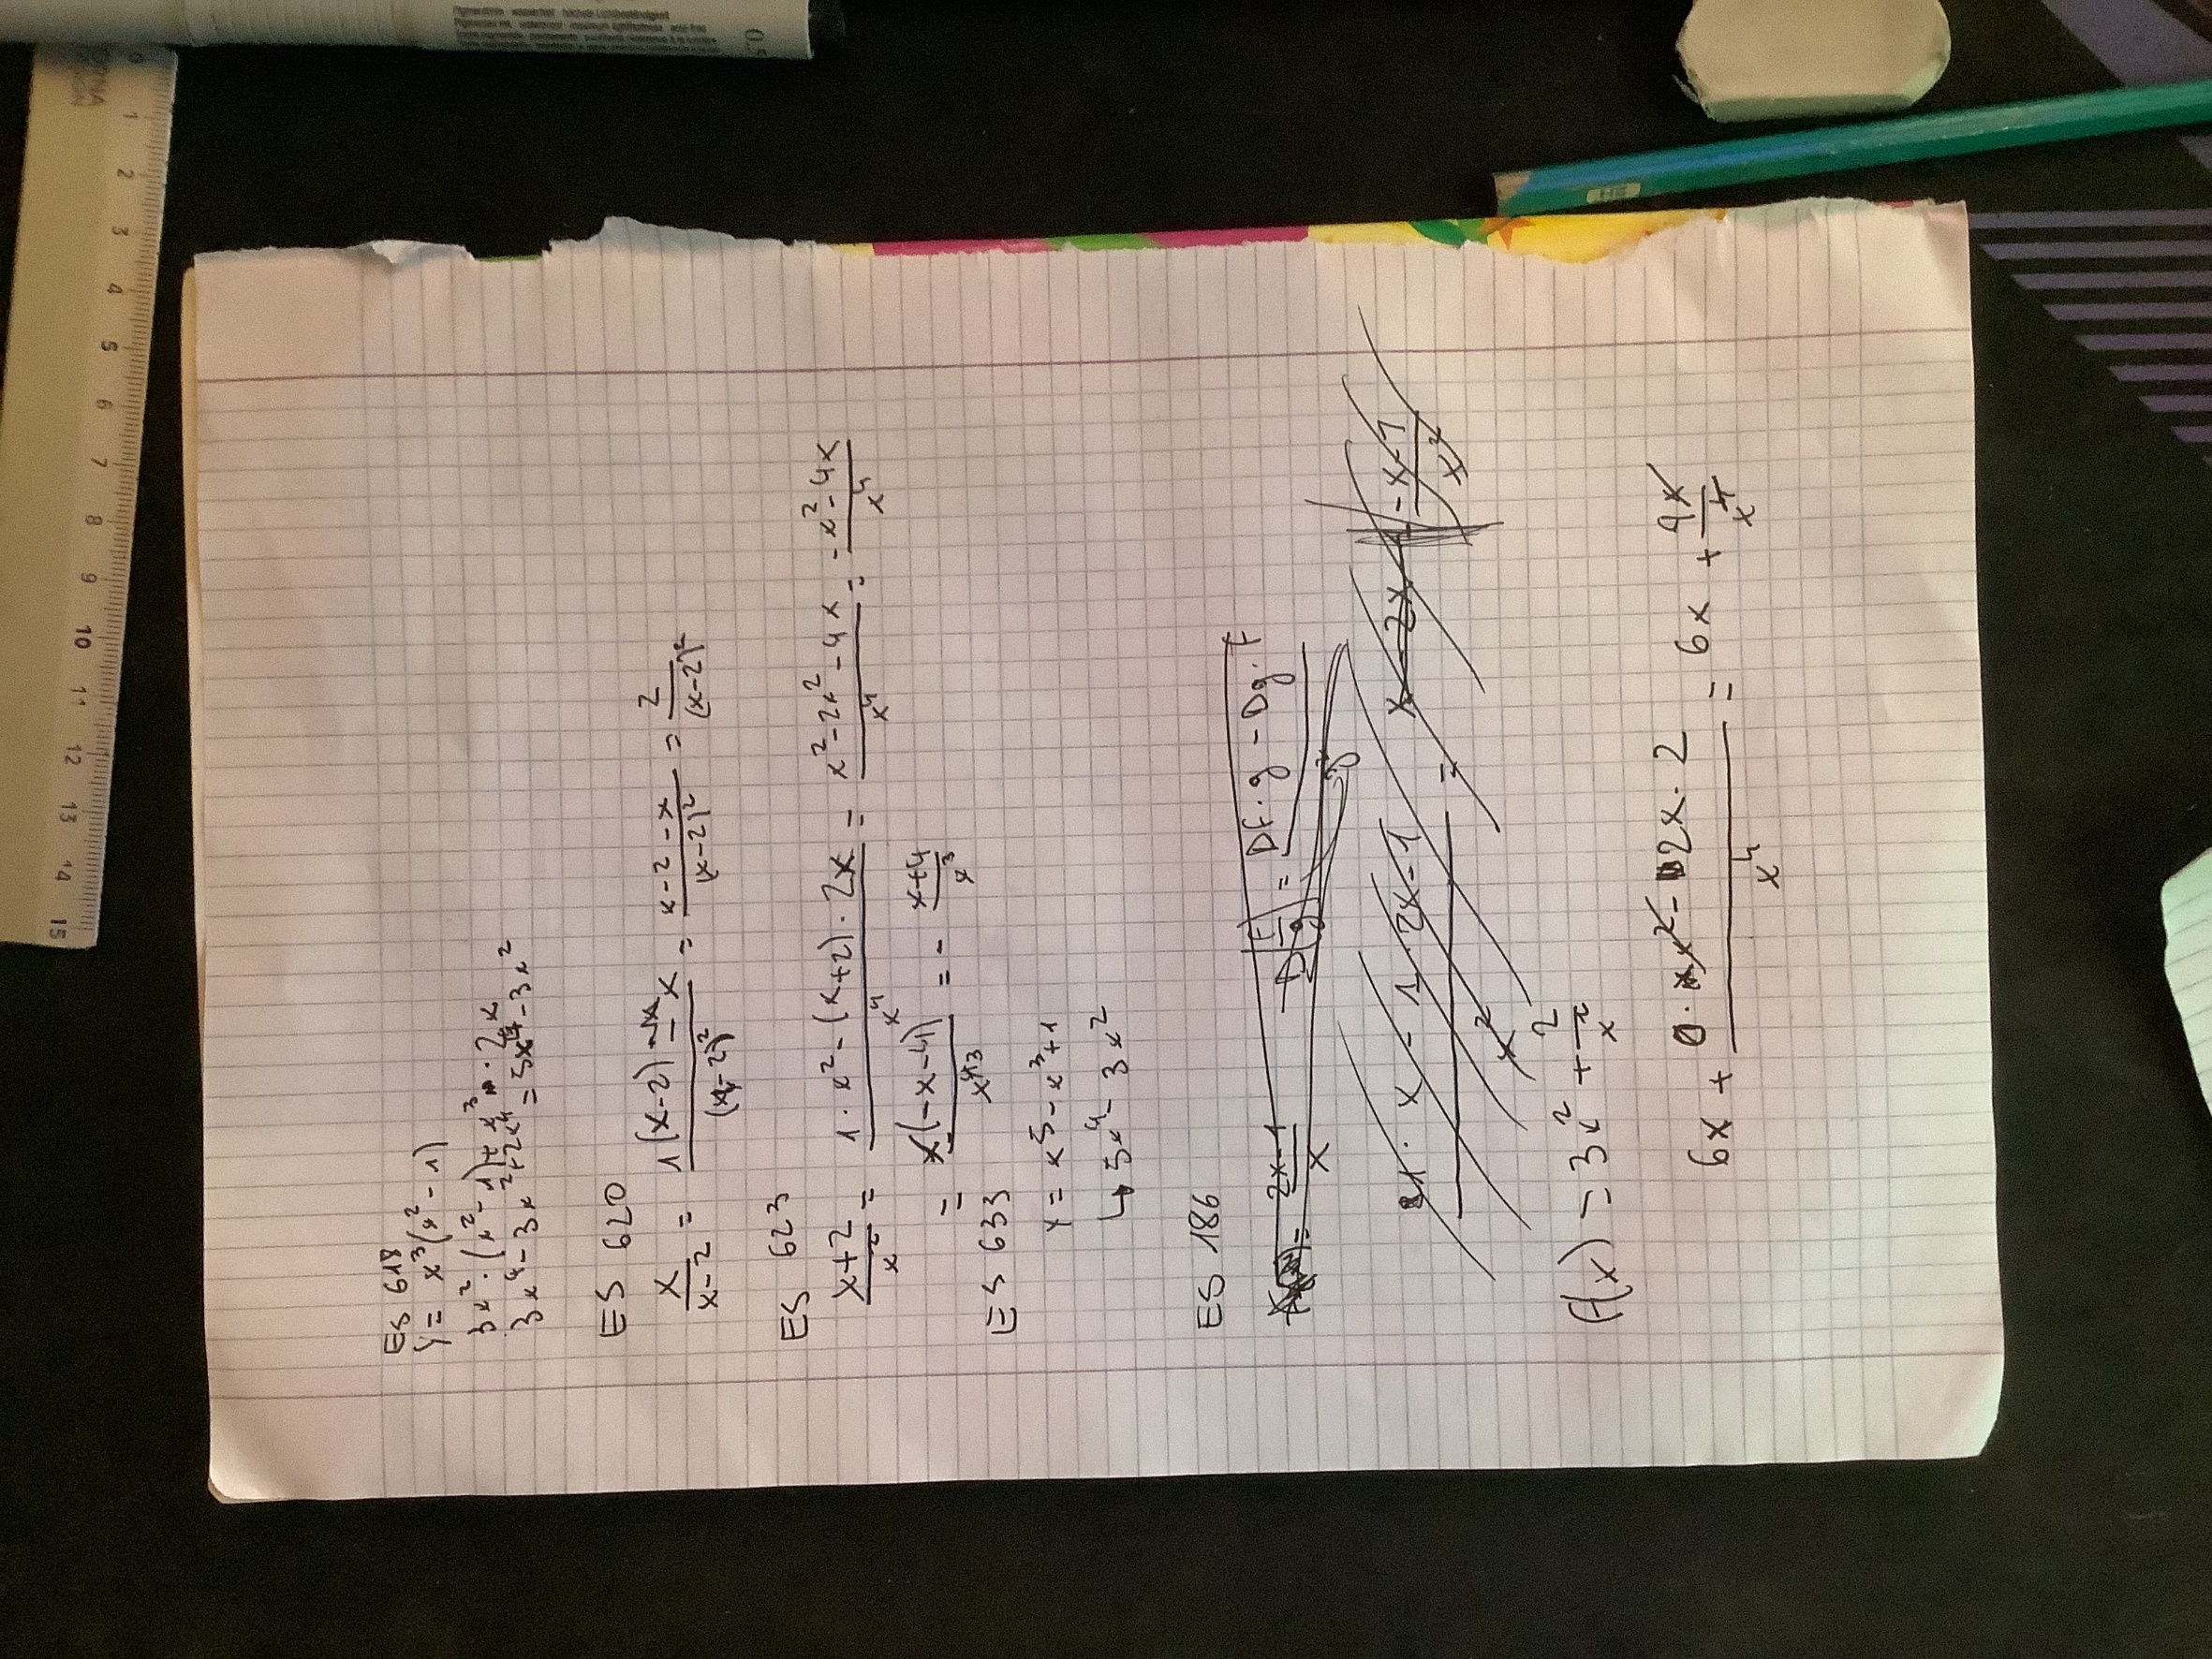 ES 618
y = x³(x² - 1)
3x² · (x² - 1) + x³ · 2x
3x⁴ - 3x² + 2x⁴ = 5x⁴ - 3x²
ES 620
x/(x-2) = (1(x-2) - x)/(x-2)² = (x-2-x)/(x-2)² = 2/(x-2)²
ES 623
(x+2)/x² = (1 · x² - (x+2) · 2x)/x⁴ = (x² - 2x² - 4x)/x⁴ = (-x² - 4x)/x⁴
= x(-x-4)/x³ = - (x+4)/x³
ES 633
y = x5 - x³ + 1
↳ 5x⁴ - 3x²
ES 186
= (2x-1)/x D(f/g) = (Df · g - Dg · f)/g²
1 · x - 1 · 2x - 1 = x - 2x - x - 1
x² x²
f(x) = 3x² + 2/x²
6x + (0 · x² - 2x · 2)/x⁴ = 6x + 4x/x⁴
0
1
2
3
4
5
6
7
8
9
10
11
12
13
14
15
HB